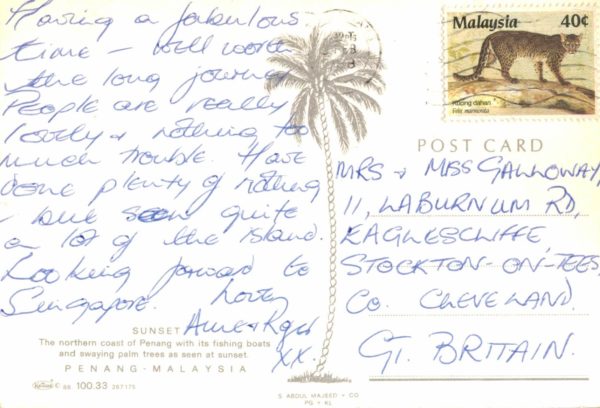 Having a fabulous
time - well worth
the long journey
People are really
lovely & nothing too
much trouble. Have
done plenty of nothing
- but seen quite
a lot of the island.
Looking forward to
Singapore. Love
Anne & Roger
XX.
SUNSET
The northern coast of Penang with its fishing boats
and swaying palm trees as seen at sunset.
PENANG - MALAYSIA
100.33 267175
S ABDUL MAJEED & CO
PG • KL
Malaysia 40¢
Kucing dahan
Felis marmorata
POST CARD
MRS & MISS GALLOWAY,
11, LABURNUM RD,
EAGLESCLIFFE,
STOCKTON-ON-TEES,
CO. CLEVELAND.
GT. BRITAIN.